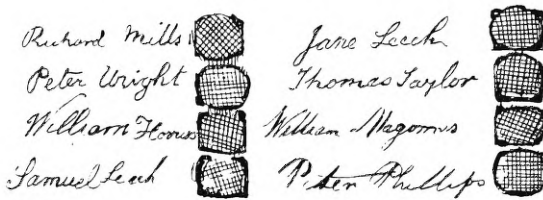 Richard Mills
Peter Wright
William
Samuel Leech
Jane Leech
Thomas Taylor
William Magomus
Peter Phillips